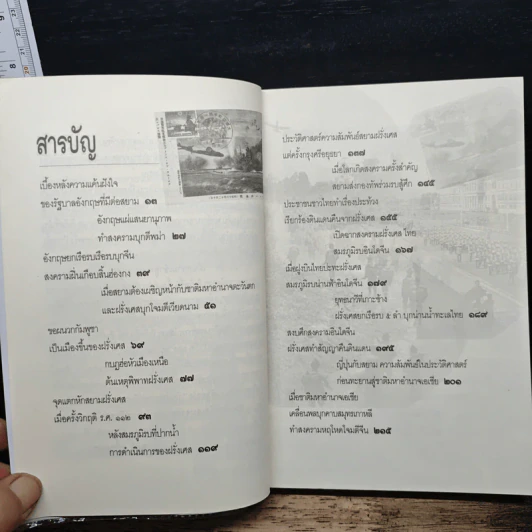 สารบัญ
เบื้องหลังความแค้นฝังใจ
ของรัฐบาลอังกฤษที่มีต่อสยาม ๑๓
อังกฤษแผ่แสนยานุภาพ
ทำสงครามบุกตีพม่า ๒๗
อังกฤษยกเรือรบเรือรบบุกจีน
สงครามฝิ่นเกือบสิ้นฮ่องกง ๓๙
เมื่อสยามต้องเผชิญหน้ากับชาติมหาอำนาจตะวันตก
และฝรั่งเศสบุกโจมตีเวียดนาม ๕๑
ขอผนวกกัมพูชา
เป็นเมืองขึ้นของฝรั่งเศส ๖๙
กบฏฮ่อหัวเมืองเหนือ
ต้นเหตุพิพาทฝรั่งเศส ๗๗
จุดแตกหักสยามฝรั่งเศส
เมื่อครั้งวิกฤติ ร.ศ. ๑๑๒ ๙๓
หลังสมรภูมิรบที่ปากน้ำ
การดำเนินการของฝรั่งเศส ๑๑๙
ประวัติศาสตร์ความสัมพันธ์สยามฝรั่งเศส
แต่ครั้งกรุงศรีอยุธยา ๑๓๗
เมื่อโลกเกิดสงครามครั้งสำคัญ
สยามส่งกองทัพร่วมรบสู้ศึก ๑๔๕
ประชาชนชาวไทยทำเรื่องประท้วง
เรียกร้องดินแดนคืนจากฝรั่งเศส ๑๕๕
เปิดฉากสงครามฝรั่งเศส ไทย
สมรภูมิรบอินโดจีน ๑๖๗
เมื่อฝูงบินไทยปะทะฝรั่งเศส
สมรภูมิรบน่านฟ้าอินโดจีน ๑๗๙
ยุทธนาวีที่เกาะช้าง
ฝรั่งเศสยกเรือรบ ๕ ลำ บุกน่านน้ำทะเลไทย ๑๘๙
สงบศึกสงครามอินโดจีน
ฝรั่งเศสทำสัญญาคืนดินแดน ๑๙๕
ญี่ปุ่นกับสยาม ความสัมพันธ์ในประวัติศาสตร์
ก่อนทะยานสู่ชาติมหาอำนาจเอเชีย ๒๐๑
เมื่อชาติมหาอำนาจเอเชีย
เคลื่อนพลบุกคาบสมุทรเกาหลี
ทำสงครามหฤโหดโจมตีจีน ๒๑๕